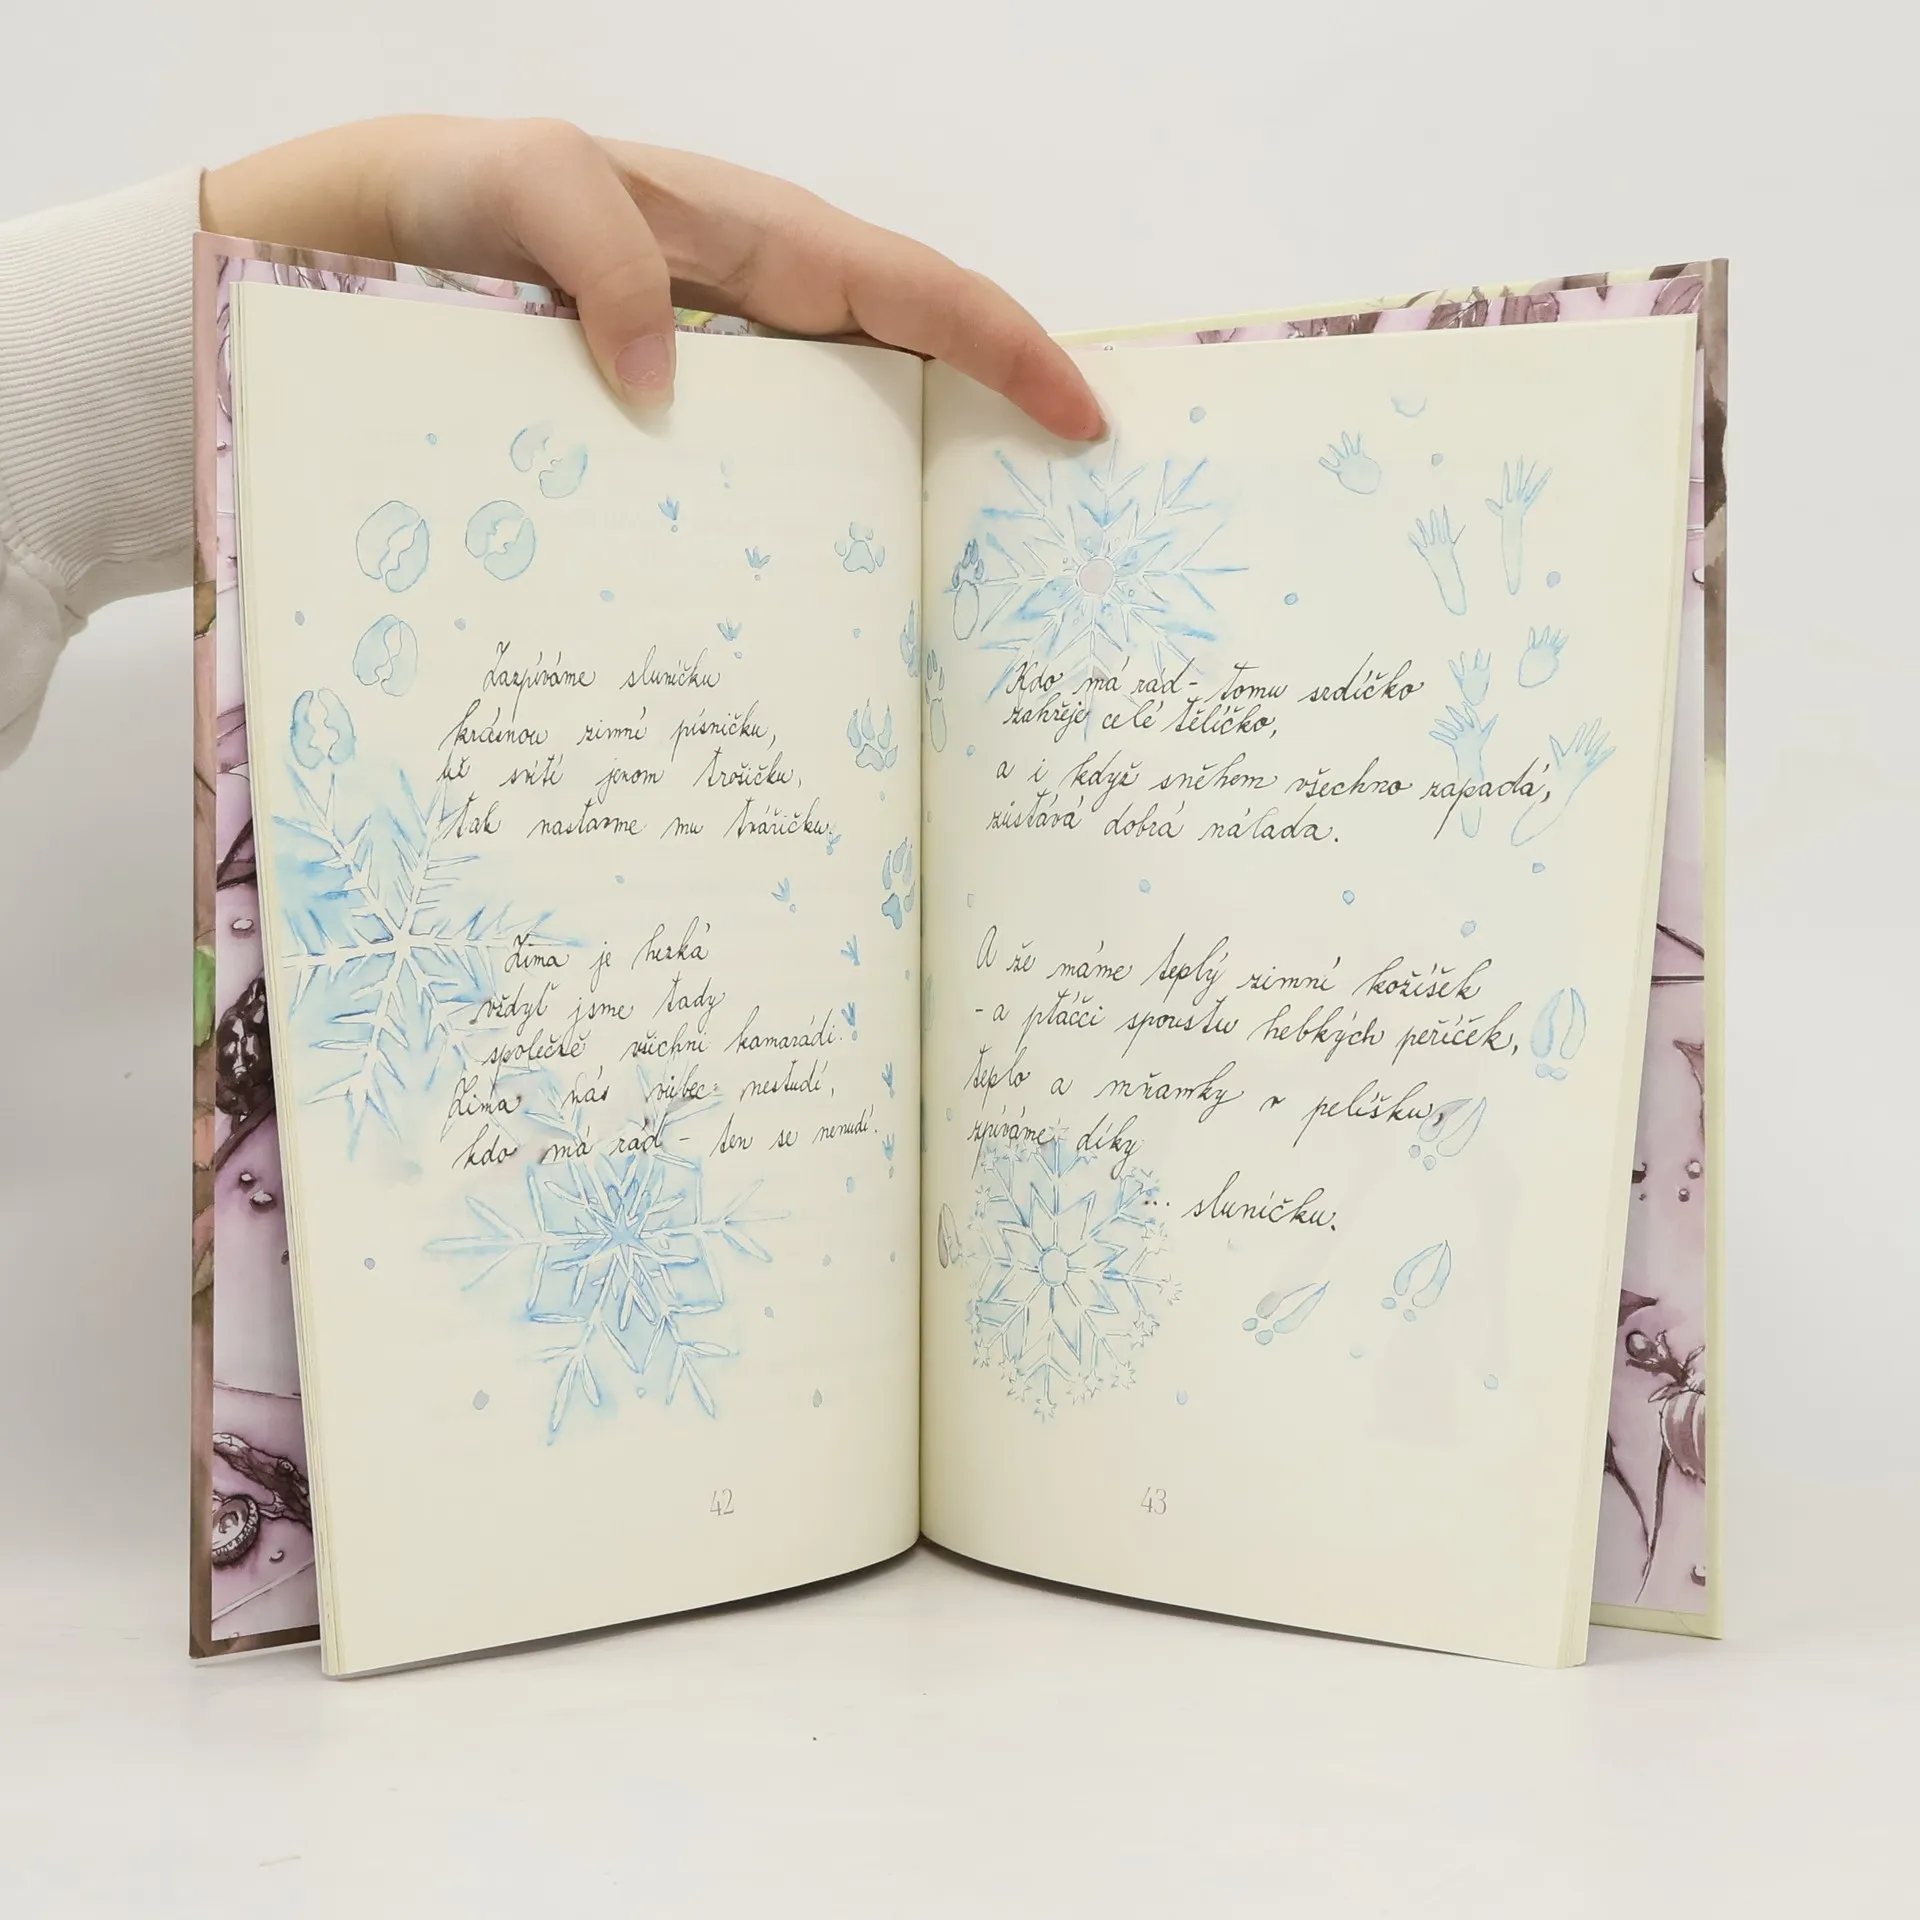 Zazpíváme sluníčku
krásnou zimní písničku,
ať svítí jenom trošičku,
tak nastavme mu tvářičku.
Zima je hezká
vždyť jsme tady
společně všichni kamarádi.
Zima nás vůbec nestudí,
kdo má rád - ten se nenudí.
42
Kdo má rád - tomu srdíčko
zahřeje celé tělíčko,
a i když sněhem všechno zapadá,
zůstává dobrá nálada.
A že máme teplý zimní kožíšek
- a ptáčci spoustu hebkých peříček,
teplo a mňamky v pelíšku,
zpíváme díky
... sluníčku.
43